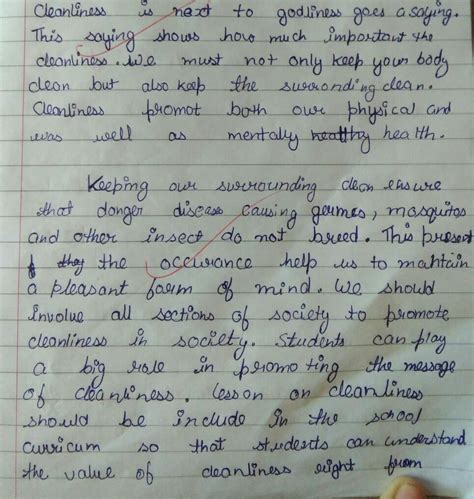 Cleanliness is next to godliness goes a saying.
This saying shows how much important the
cleanliness. We must not only keep your body
clean but also keep the surronding clean.
Cleanliness promot both our physical and
was well as mentally healthy health.
Keeping our surrounding clean ensure
that danger disease causing germes, mosquitos
and other insect do not breed. This present
the occurance help us to maintain
a pleasant faum of mind. We should
involve all sections of society to promote
cleanliness in society. Students can play
a big role in promoting the message
of cleanliness. lesson on cleanliness
should be include in the school
curricum so that students can understand
the value of cleanliness right from